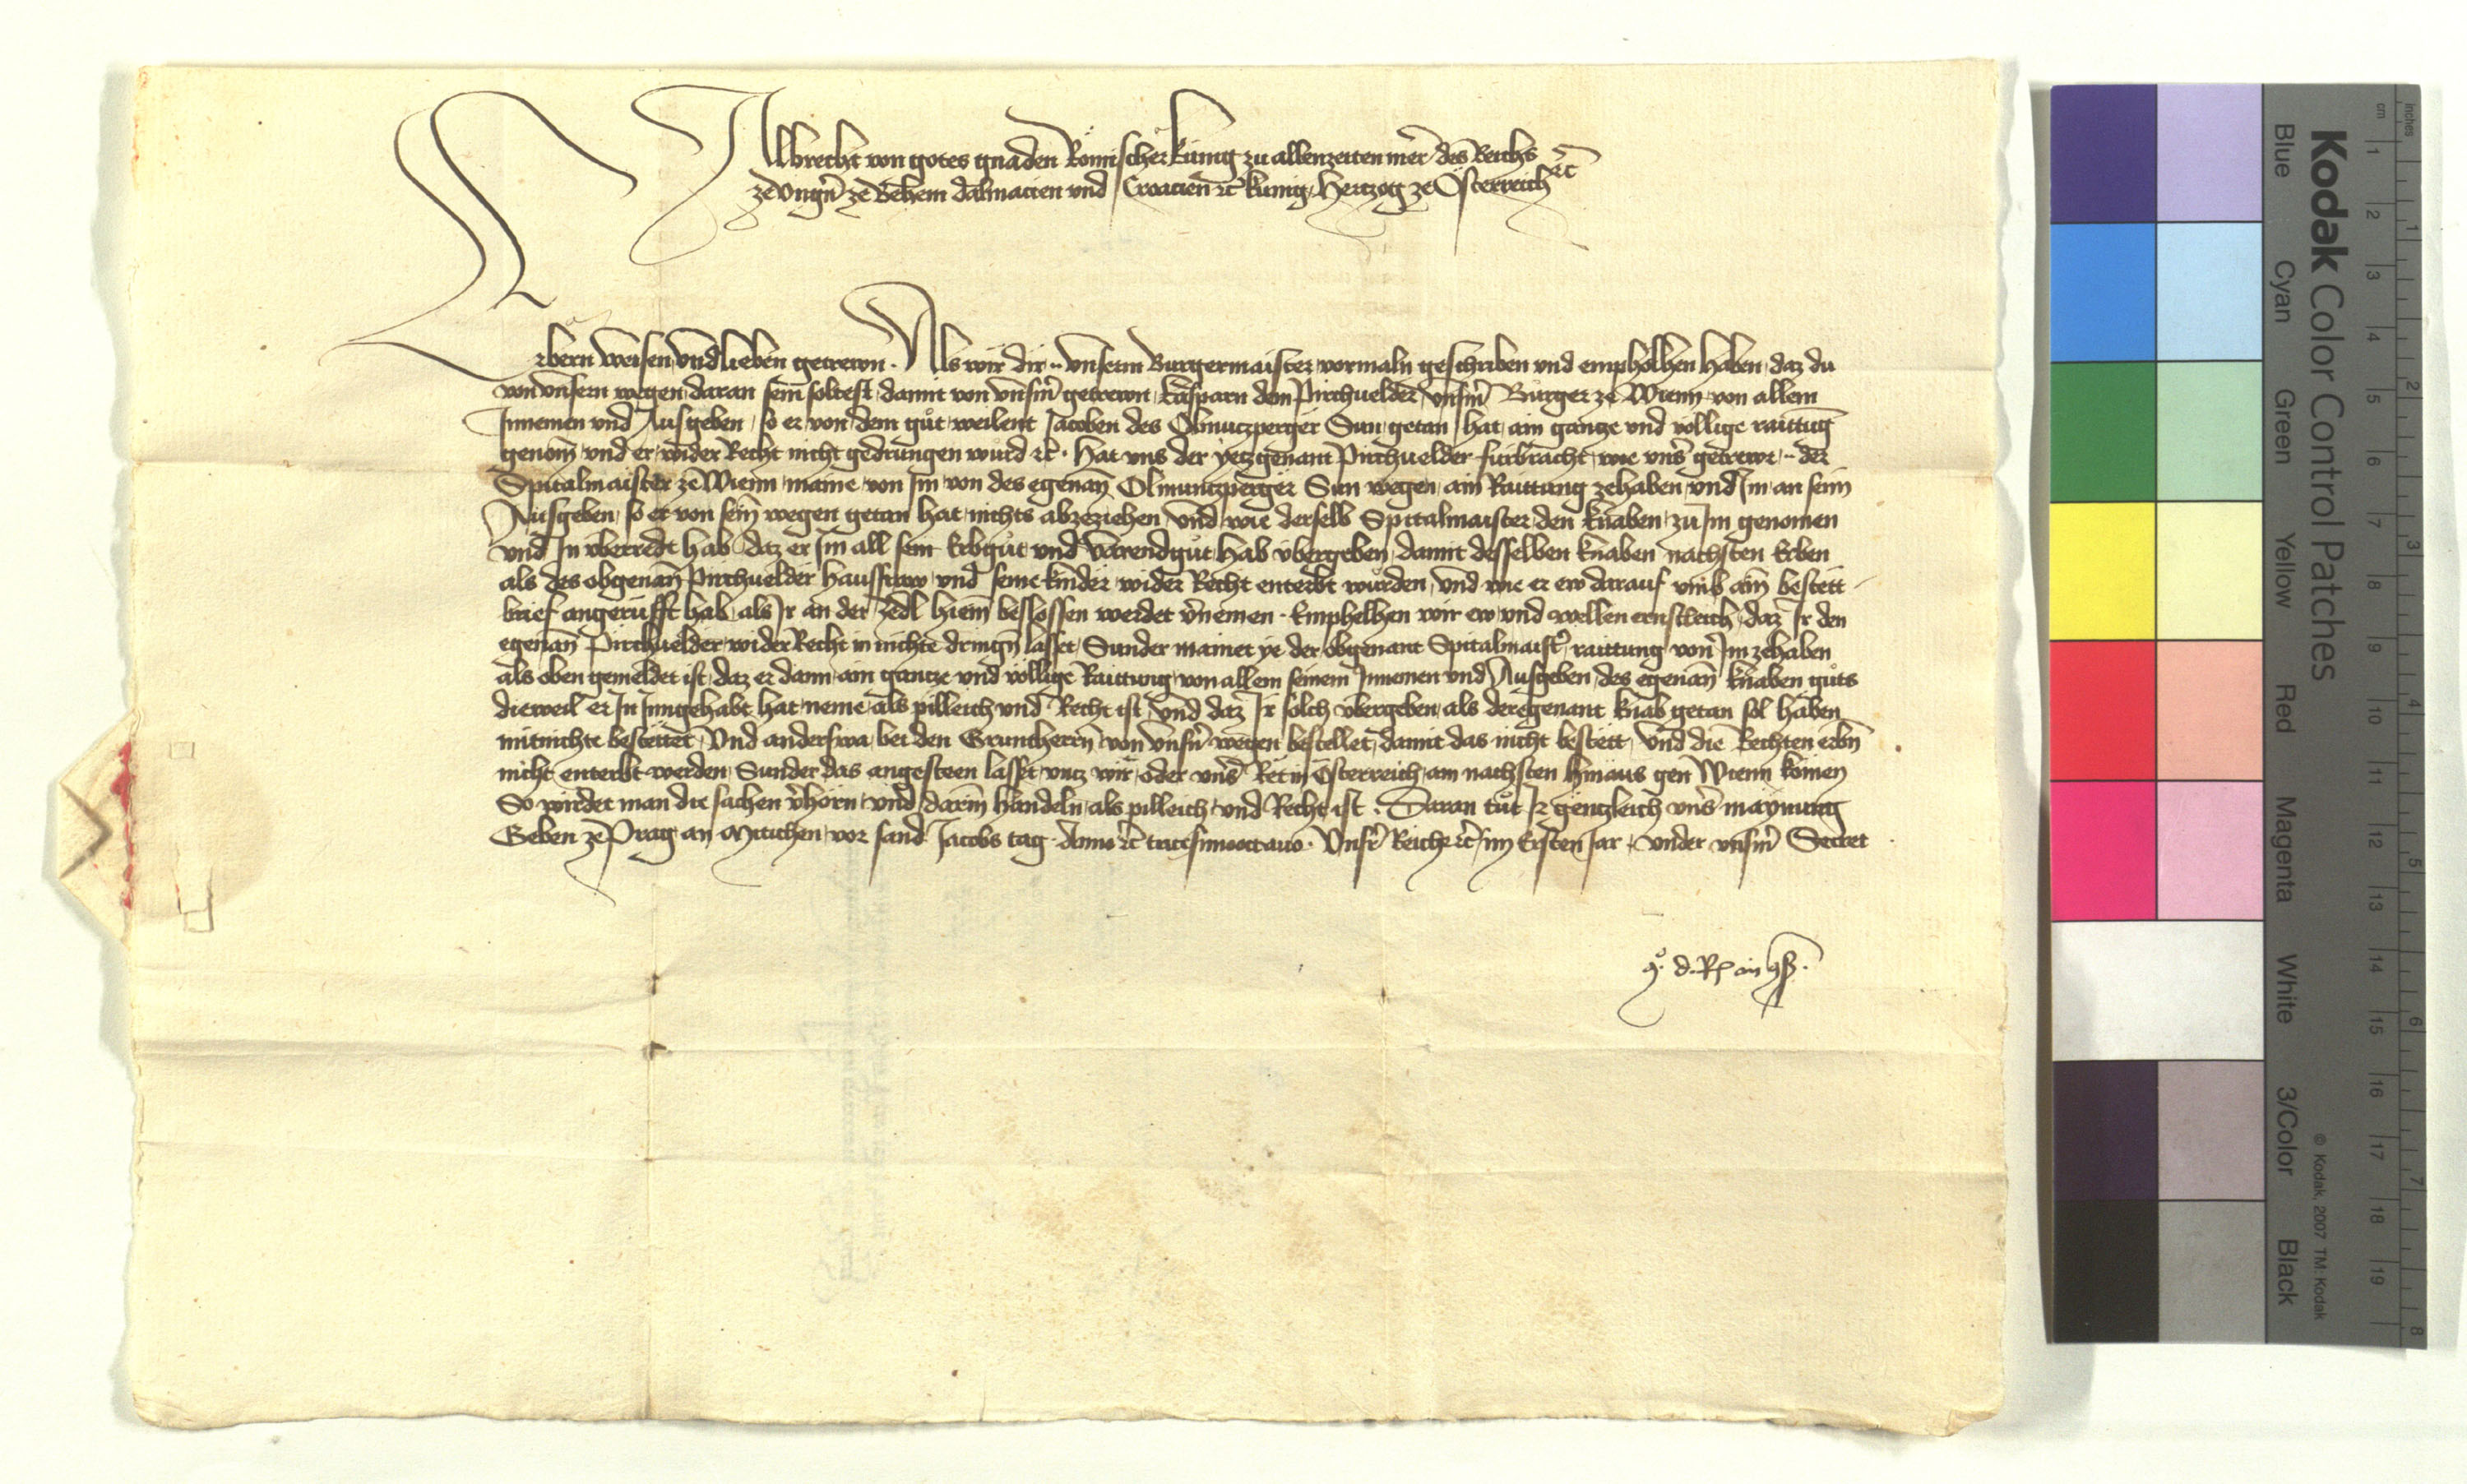 Albrecht von gotes gnaden Römischer kunig zu allenzeiten merer des Reichs
ze vngern ze Behem Dalmacien und Croacien etc kunig, Hertzog ze Österreich etc
Erbern weisen vnd lieben getrewn. Als wir dir .. vnserm Burgermaister vormaln geschriben und empholhen haben, daz du
von vnsern wegen daran sein soltest, damit von vnserm getrewn, Casparn dem Pirchuelder vnserm Burger ze Wienn von allem
Innemen vnd Ausgeben, so er von dem gůt, weilent Jacoben des Olmuczperger Sun getan hat, ain gancze vnd völlige raittung
genom, vnd er wider Recht nicht gedrungen wurd etc. Hat vns der yetzgenant Pirchuelder furbracht, wie vnser getrewr .. der
Spitalmaister ze Wienn, maine, von Im von des egenan Olmunczperger Sun wegen, ain Raittung zehaben, vnd Im an seim
Ausgeben, so er von seim wegen getan hat, nichts abzeziehen, Vnd wie derselb Spitalmaister den knaben, zu Im genomen
vnd In vberredt hab, daz er Im all sein Erbgůt vnd Varendgůt hab übergeben, damit desselben knaben nachsten Erben
als des obgenan Pirchuelder hausfraw, vnd seine kinder, wider Recht enterbt wurden, Vnd wie er ew darauf vmb ain bestett
brief angerufft hab, als Ir an der zedl hierin beslossen werdet vernemen. Emphelhen wir ew, vnd wellen ernstleich, daz Ir den
egenan Pirchuelder, wider Recht in nichte dringn lasset, Sunder mainet ye der obgenant Spitalmaister, raittung von Im zehaben
als oben gemeldet ist, daz er dann ain gancze vnd völlige Raittung, von allem seinem Innemen vnd Ausgeben, des egenan knaben gůts
dieweil er In Inngehabt hat, neme, als pilleich vnd Recht ist, Vnd daz Ir solch vbergeben, als der egenant knab getan sol haben
mitnichte bestettet, Vnd anderswa bei den Gruntherrn von vnsern wegen bestellet, damit das nicht bestett, vnd die Rechten erbn
nicht enterbt werden, Sunder das angesteen lasset, vncz wir, oder vnser Ret in Österreich, am nachsten hinaus gen Wienn komen
So wirdet man die sachen verhörn, vnd darinn handeln, als pilleich vnd Recht ist. Daran tůt Ir genczleich vnser maynung
Geben ze Prag an Mitichen, vor sand Jacobs tag. Anno etc tricesimooctauo. Vnsrer Reich etc im Ersten Jar, vnder vnserm Secret
d. R. in
Kodak Color Control Patches
Blue Cyan Green Yellow Red Magenta White 3/Color Black
© Kodak, 2007 TM: Kodak
cm 1 2 3 4 5 6 7 8 9 10 11 12 13 14 15 16 17 18 19
inches 1 2 3 4 5 6 7 8